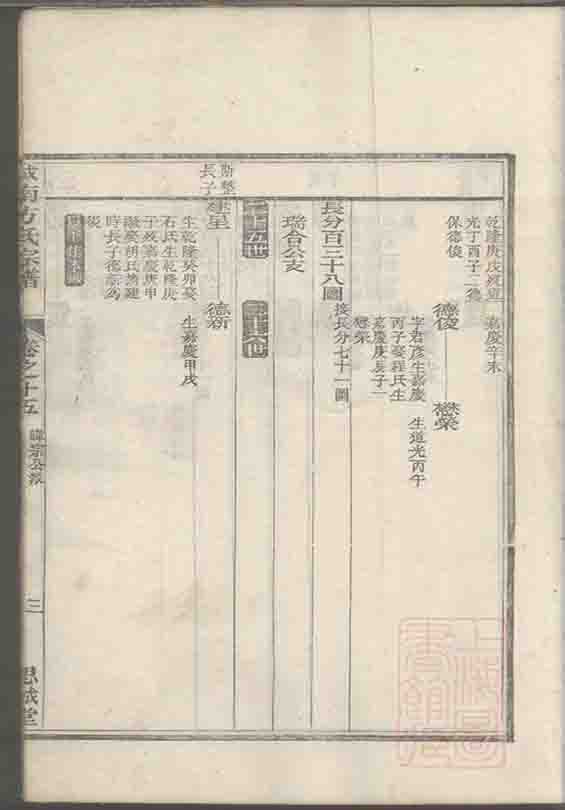 乾隆庚戌歿嘉慶辛未
光丁酉子二德
保德俊
德俊
字君彥生嘉慶
丙子娶程氏生
嘉慶庚長子一
懋榮
懋榮
生道光丙午
長分百三十八圖
接長分七十一圖
瑞合公支
二十五世
二十六世
長子
建呈
生乾隆癸卯娶
石氏生乾隆庚
子歿嘉慶庚甲
繼娶胡氏
時長子德新為
德新
生嘉慶甲戌
城南方氏宗譜
卷之十五
諱宗公派
三
思誠堂
上海圖書館藏